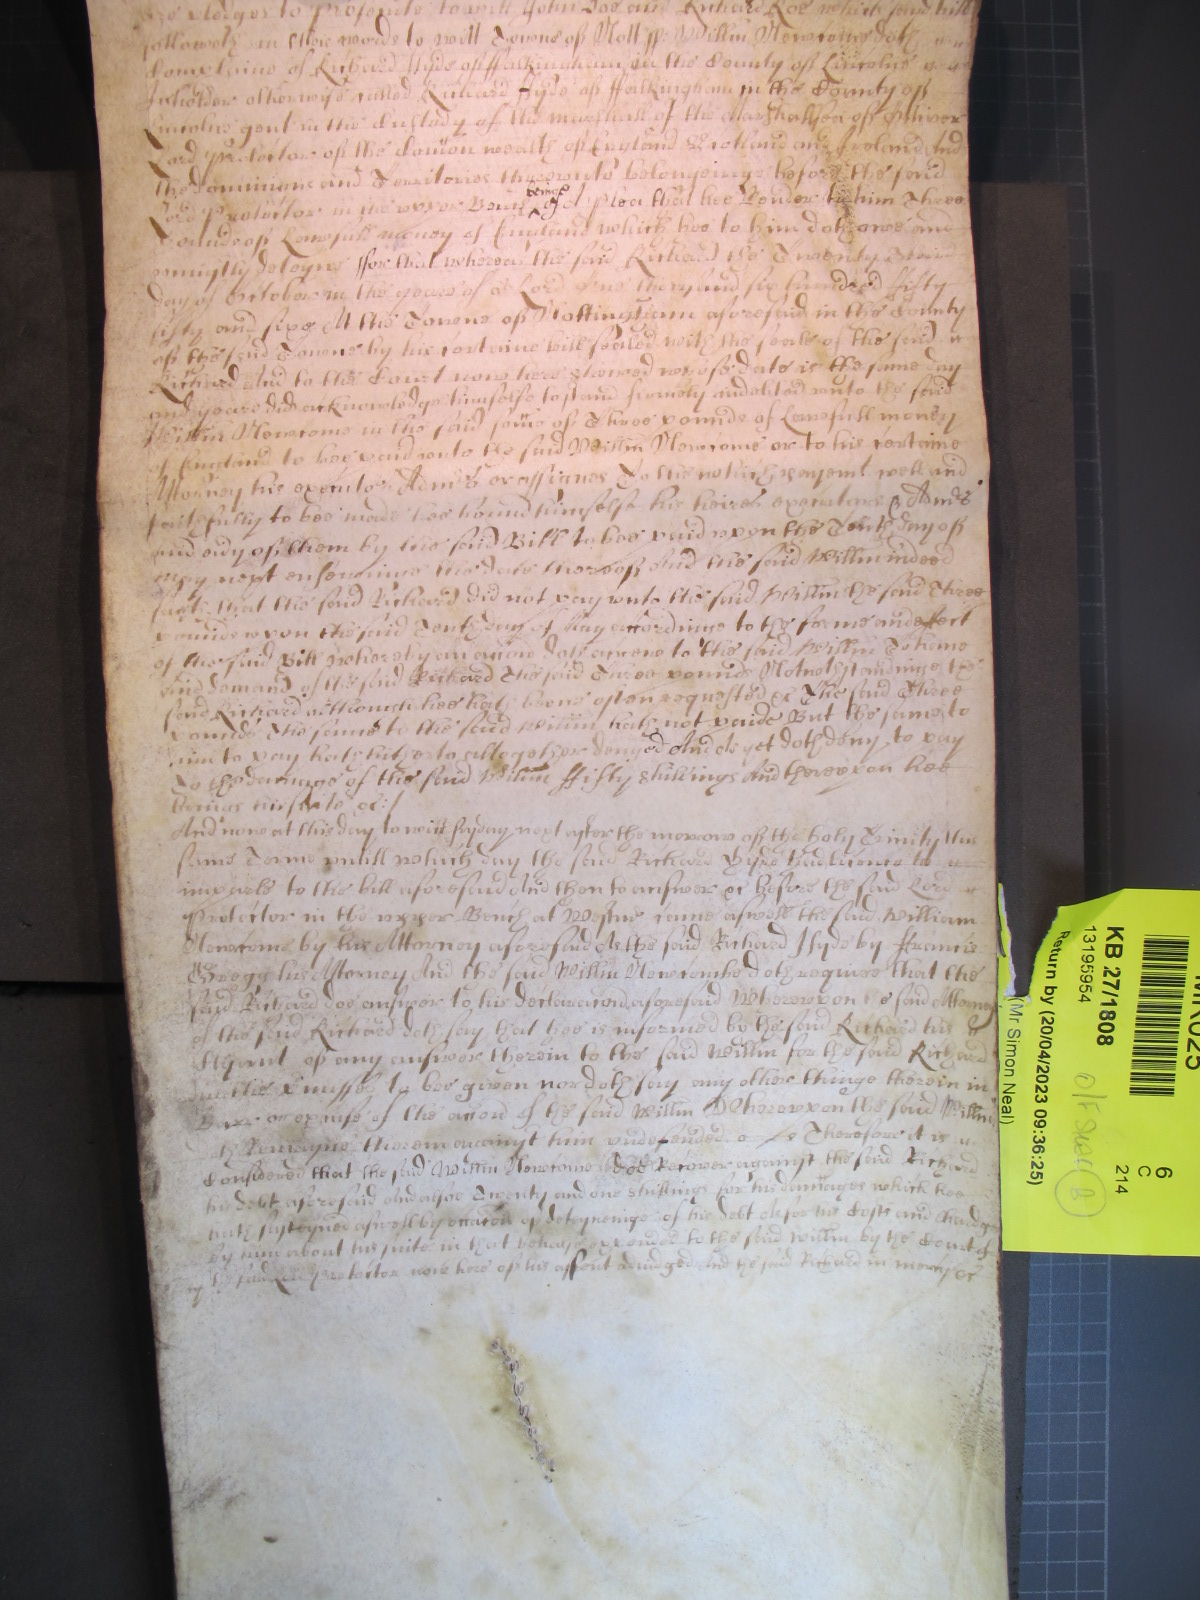 are pledges to prosecute to witt John Doe and Richard Roe which said bill
followeth in these words to witt Towne of Nott ss Willm Newcome doth
Complaine of Richard Hyde of ffalkingham in the County of Lincolne
Inholder otherwise called Richard Hyde of ffalkingham in the County of
Lincolne gent in the Custody of the marshall of the Marshallsea of Oliver
Lord Protector of the Comon wealth of England Scotland and Ireland And
the Dominions and Territories thereunto belongeinge before the said
Lord Protector in the upper Bench being of A plea that hee Render to him Three
Pounds of Lawfull money of England which hee to him doth owe and
uniustly deteyne ffor that whereas the said Richard the Twenty Third
day of October in the yeare of or Lord one thousand six hundred fifty
fifty and sixe At the Towne of Nottingham aforesaid in the County
of the said Towne by his certaine bill sealed with the seale of the said
Richard And to the Court now here shewed whose date is the same day
and yeare did acknowledge himselfe to stand firmely indebted unto the said
Willm Newcome in the said sume of Three pounds of Lawfull money
of England to bee paid unto the said Willm Newcome or to his certaine
Attorney his executors Admrs or assignes To the which payemt well and
faithfully to bee made hee bound himselfe his heires executors & Admrs
and evy of them by the said Bill to bee paid upon the Tenth day of
May next ensueinge the date thereof And the said Willm indeed
saith that the said Richard did not pay unto the said Willm the said Three
pounds upon the said Tenth day of May accordinge to the forme and effect
of the said Bill whereby an accon doth accrue to the said Willm To have
and demand of the said Richard The said Three pounds Notwthstandinge the
said Richard although hee hath beene often requested &c The said Three
pounds The same to the said Willm hath not paide But the same to
him to pay hath hitherto alltogether denyed And As yet doth deny to pay
To the damage of the said Willm ffifty shillings And thereupon hee
brings his suite &c:/
And now at this day to witt fryday next after the morrow of the holy Trinity this
same Terme untill which day the said Richard Hyde had licence to
imparle to the bill aforesaid And then to answer &c before the said Lord
Protector in the upper Bench at Westmr came aswell the said William
Newcome by his Attorney aforesaid As the said Richard Hyde by ffrancis
Gregg his Attorney And the said Willm Newcombe doth require that the
said Richard doe answer to his declaracon aforesaid Whereupon the said Attorney
of the said Richard doth say that hee is informed by the said Richard his
Mr of any answer therein to the said Willm for the said Richard
in the premisses to bee given nor doth say any other thinge therein in
Barr or excuse of the accon of the said Willm Whereupon the said Willm
Remayne therein against him undefended Therefore it is
Considered that the said Willm Newcome doe Recover against the said Richard
his debt aforesaid And alsoe Twenty and one shillings for his dammages which hee
hath susteyned aswell by occacon of deteyneinge of his debt As for his Costs and Charges
by him about his suite in that behalfe expended to the said Willm by the Court of
the said Lord Protector now here of his assent adiudged And the said Richard in mercy &c
MR025
KB 27/1808
13195954
Return by (20/04/2023 09:36:25)
(Mr Simon Neal)
6
C
214